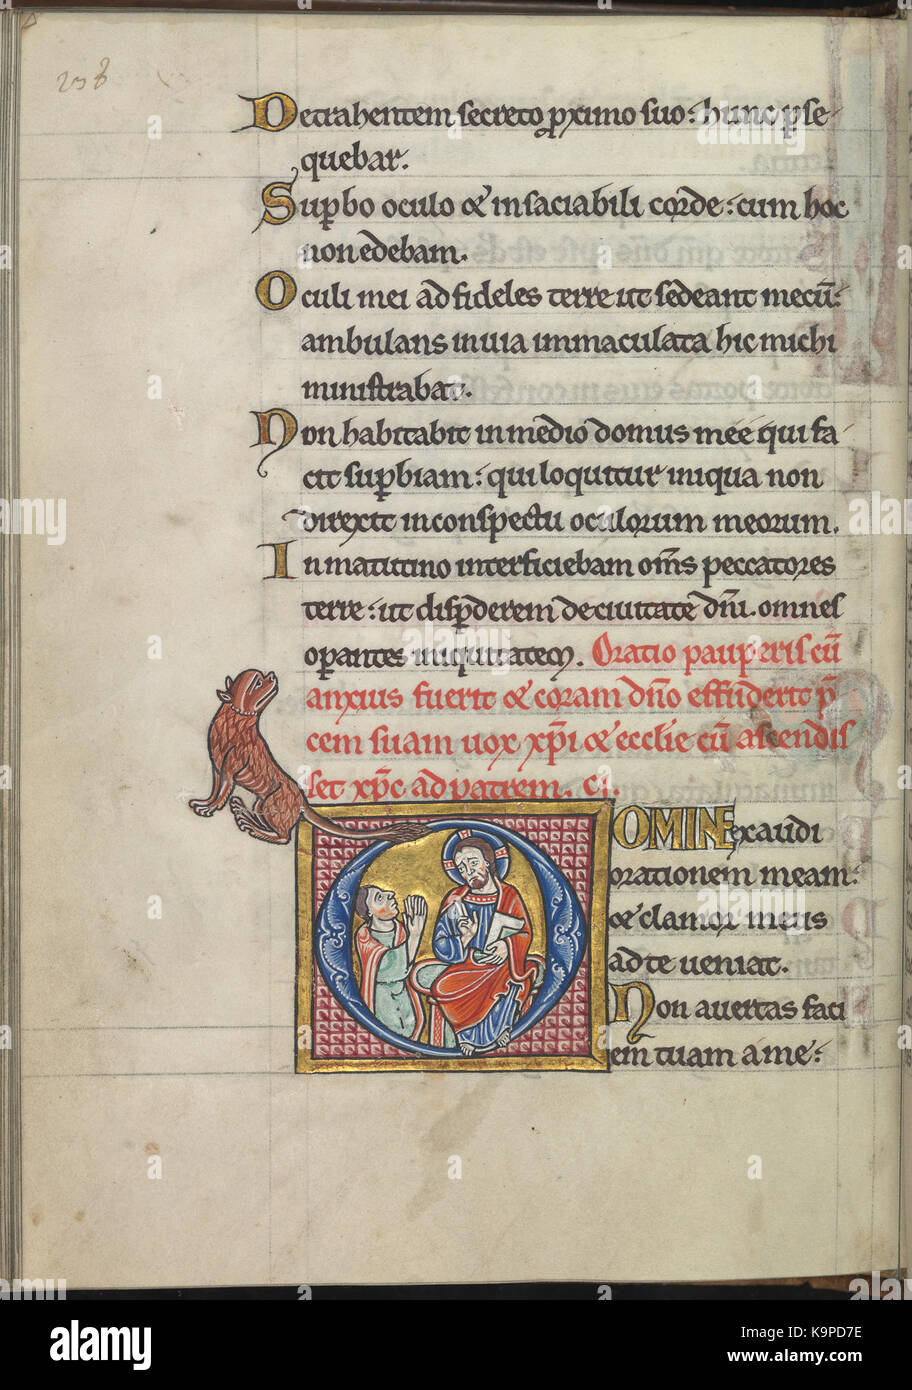 238
Detrahentem secreto pximo suo: hunc pse-
quebar.
Supbo oculo & insaciabili corde: cum hoc
non edebam.
Oculi mei ad fideles terre ut sedeant mecū:
ambulans inuia immaculata hic michi
ministrabat.
Non habitabit in medio domus mee qui fa-
cit supbiam: qui loquitur iniqua non
direxit in conspectu oculorum meorum.
In matutino interficiebam om̄s peccatores
terre: ut dispderem de ciuitate dn̄i. omnes
opantes iniquitatem. Oratio pauperis cū
anxius fuerit & coram dn̄o effuderit p̄
cem suam uox xp̄i & ecclie cū ascendis
set xp̄c ad patrem. ci.
DOMINE exaudi
orationem meam:
& clamor meus
ad te ueniat.
Non auertas faci
em tuam a me:
alamy
Image ID: K9PD7E
www.alamy.com